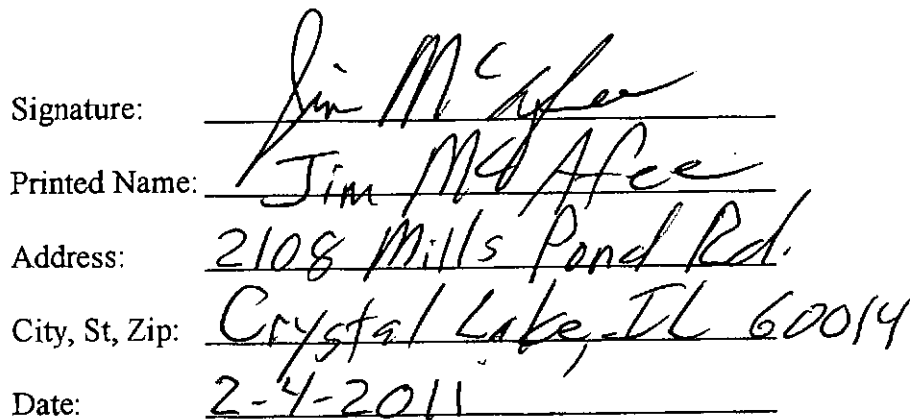 Signature: Jim McAfee
Printed Name: Jim McAfee
Address: 2108 Mills Pond Rd.
City, St, Zip: Crystal Lake, IL 60014
Date: 2-4-2011